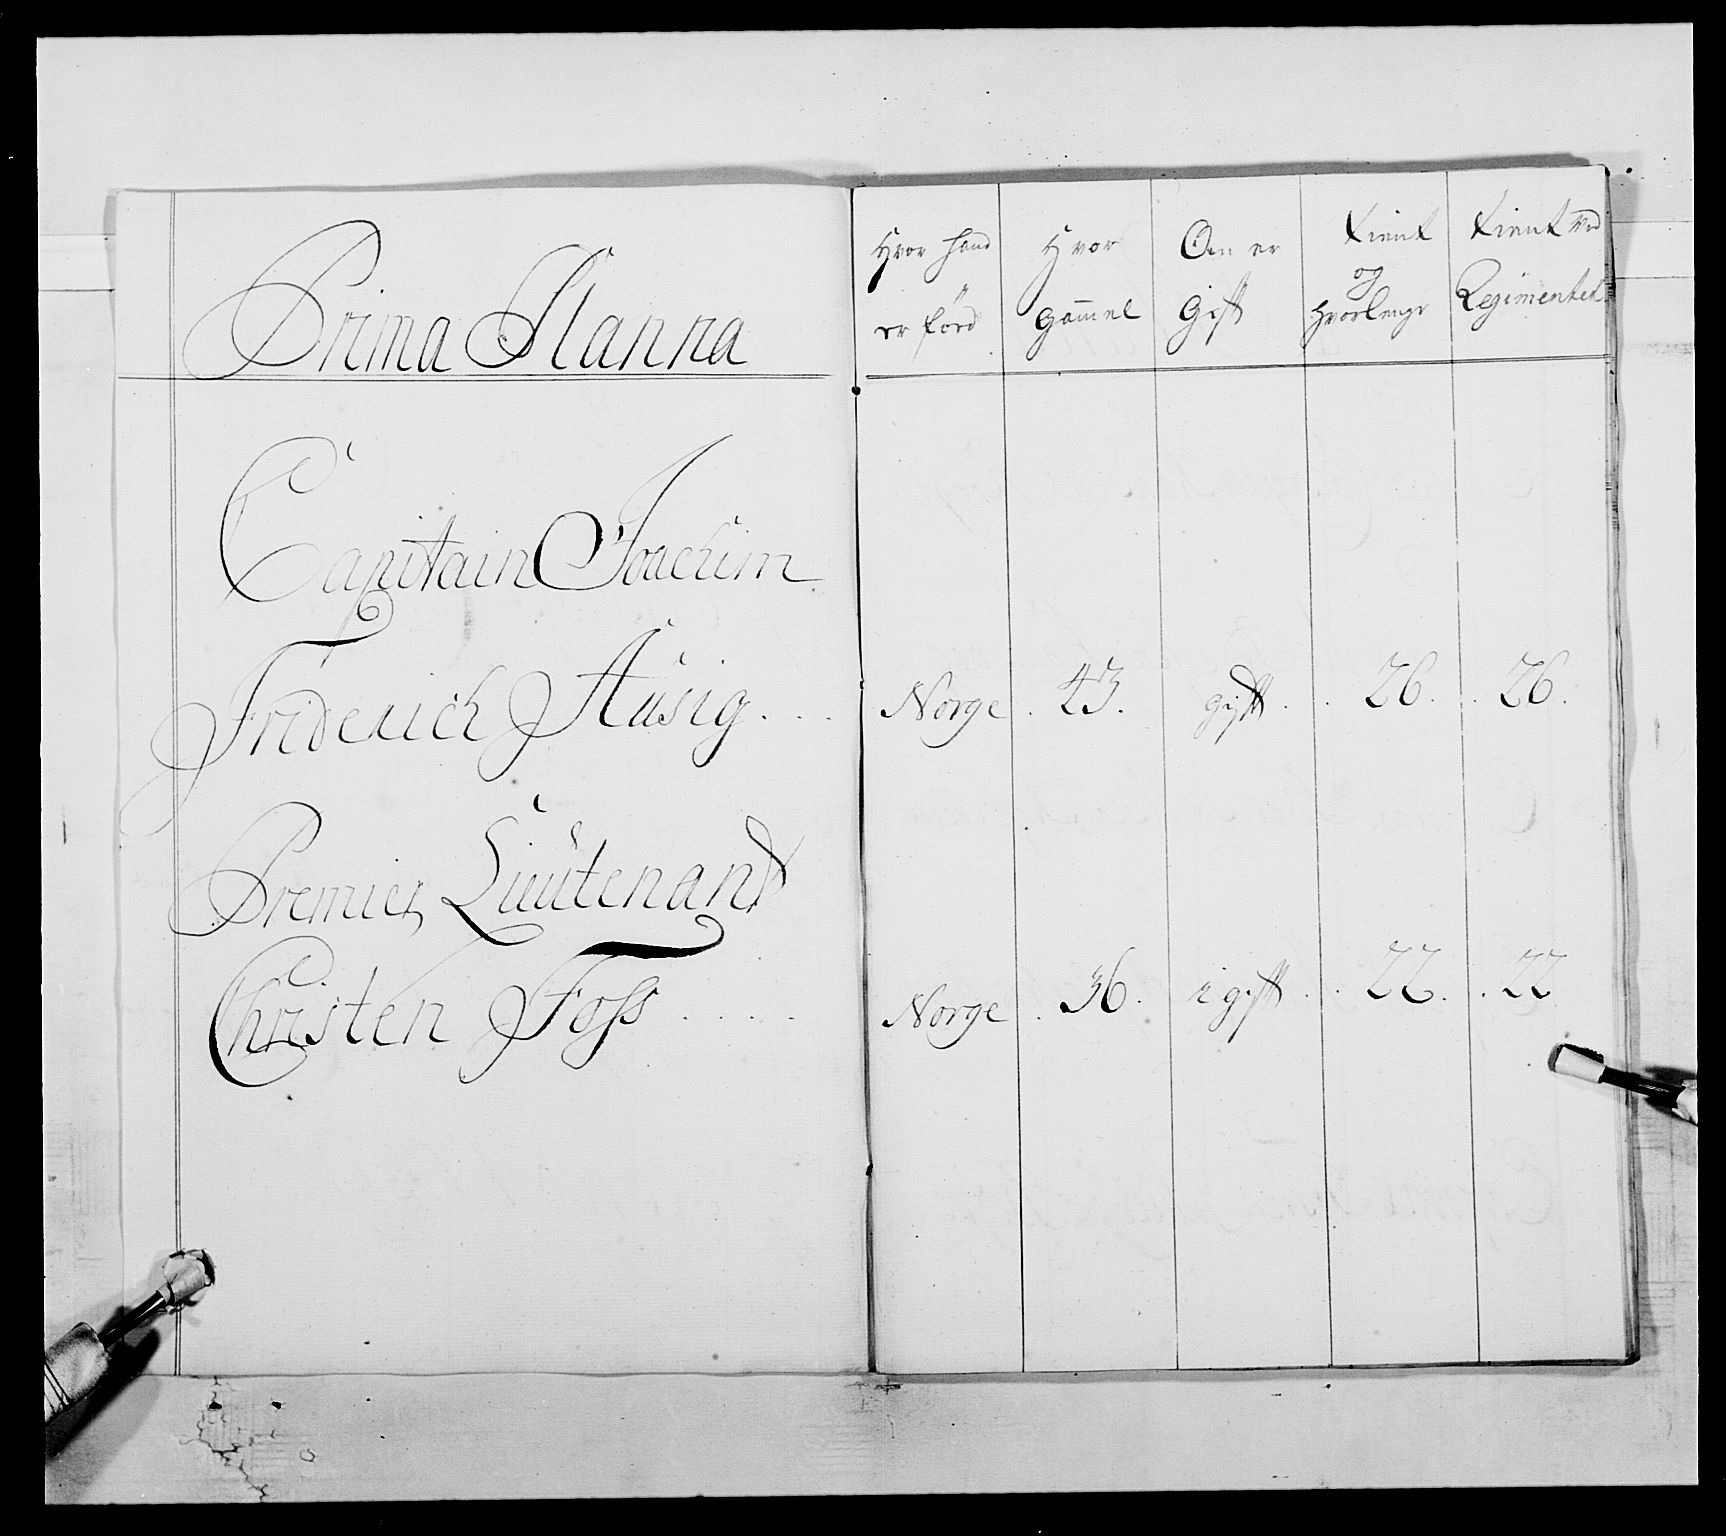 Prima Planna
Hvor hand er förd
Hvor gam̄el
Om er Gift
Tient og hvorlenge
Tient ved Regimentet
Capitain Joachim
Friderich Hüsig . . . Norge . 43. gift . . 26. . 26.
Premier Lieütenant
Christen Foss . . . . Norge . 36. igift . . 22. . 22